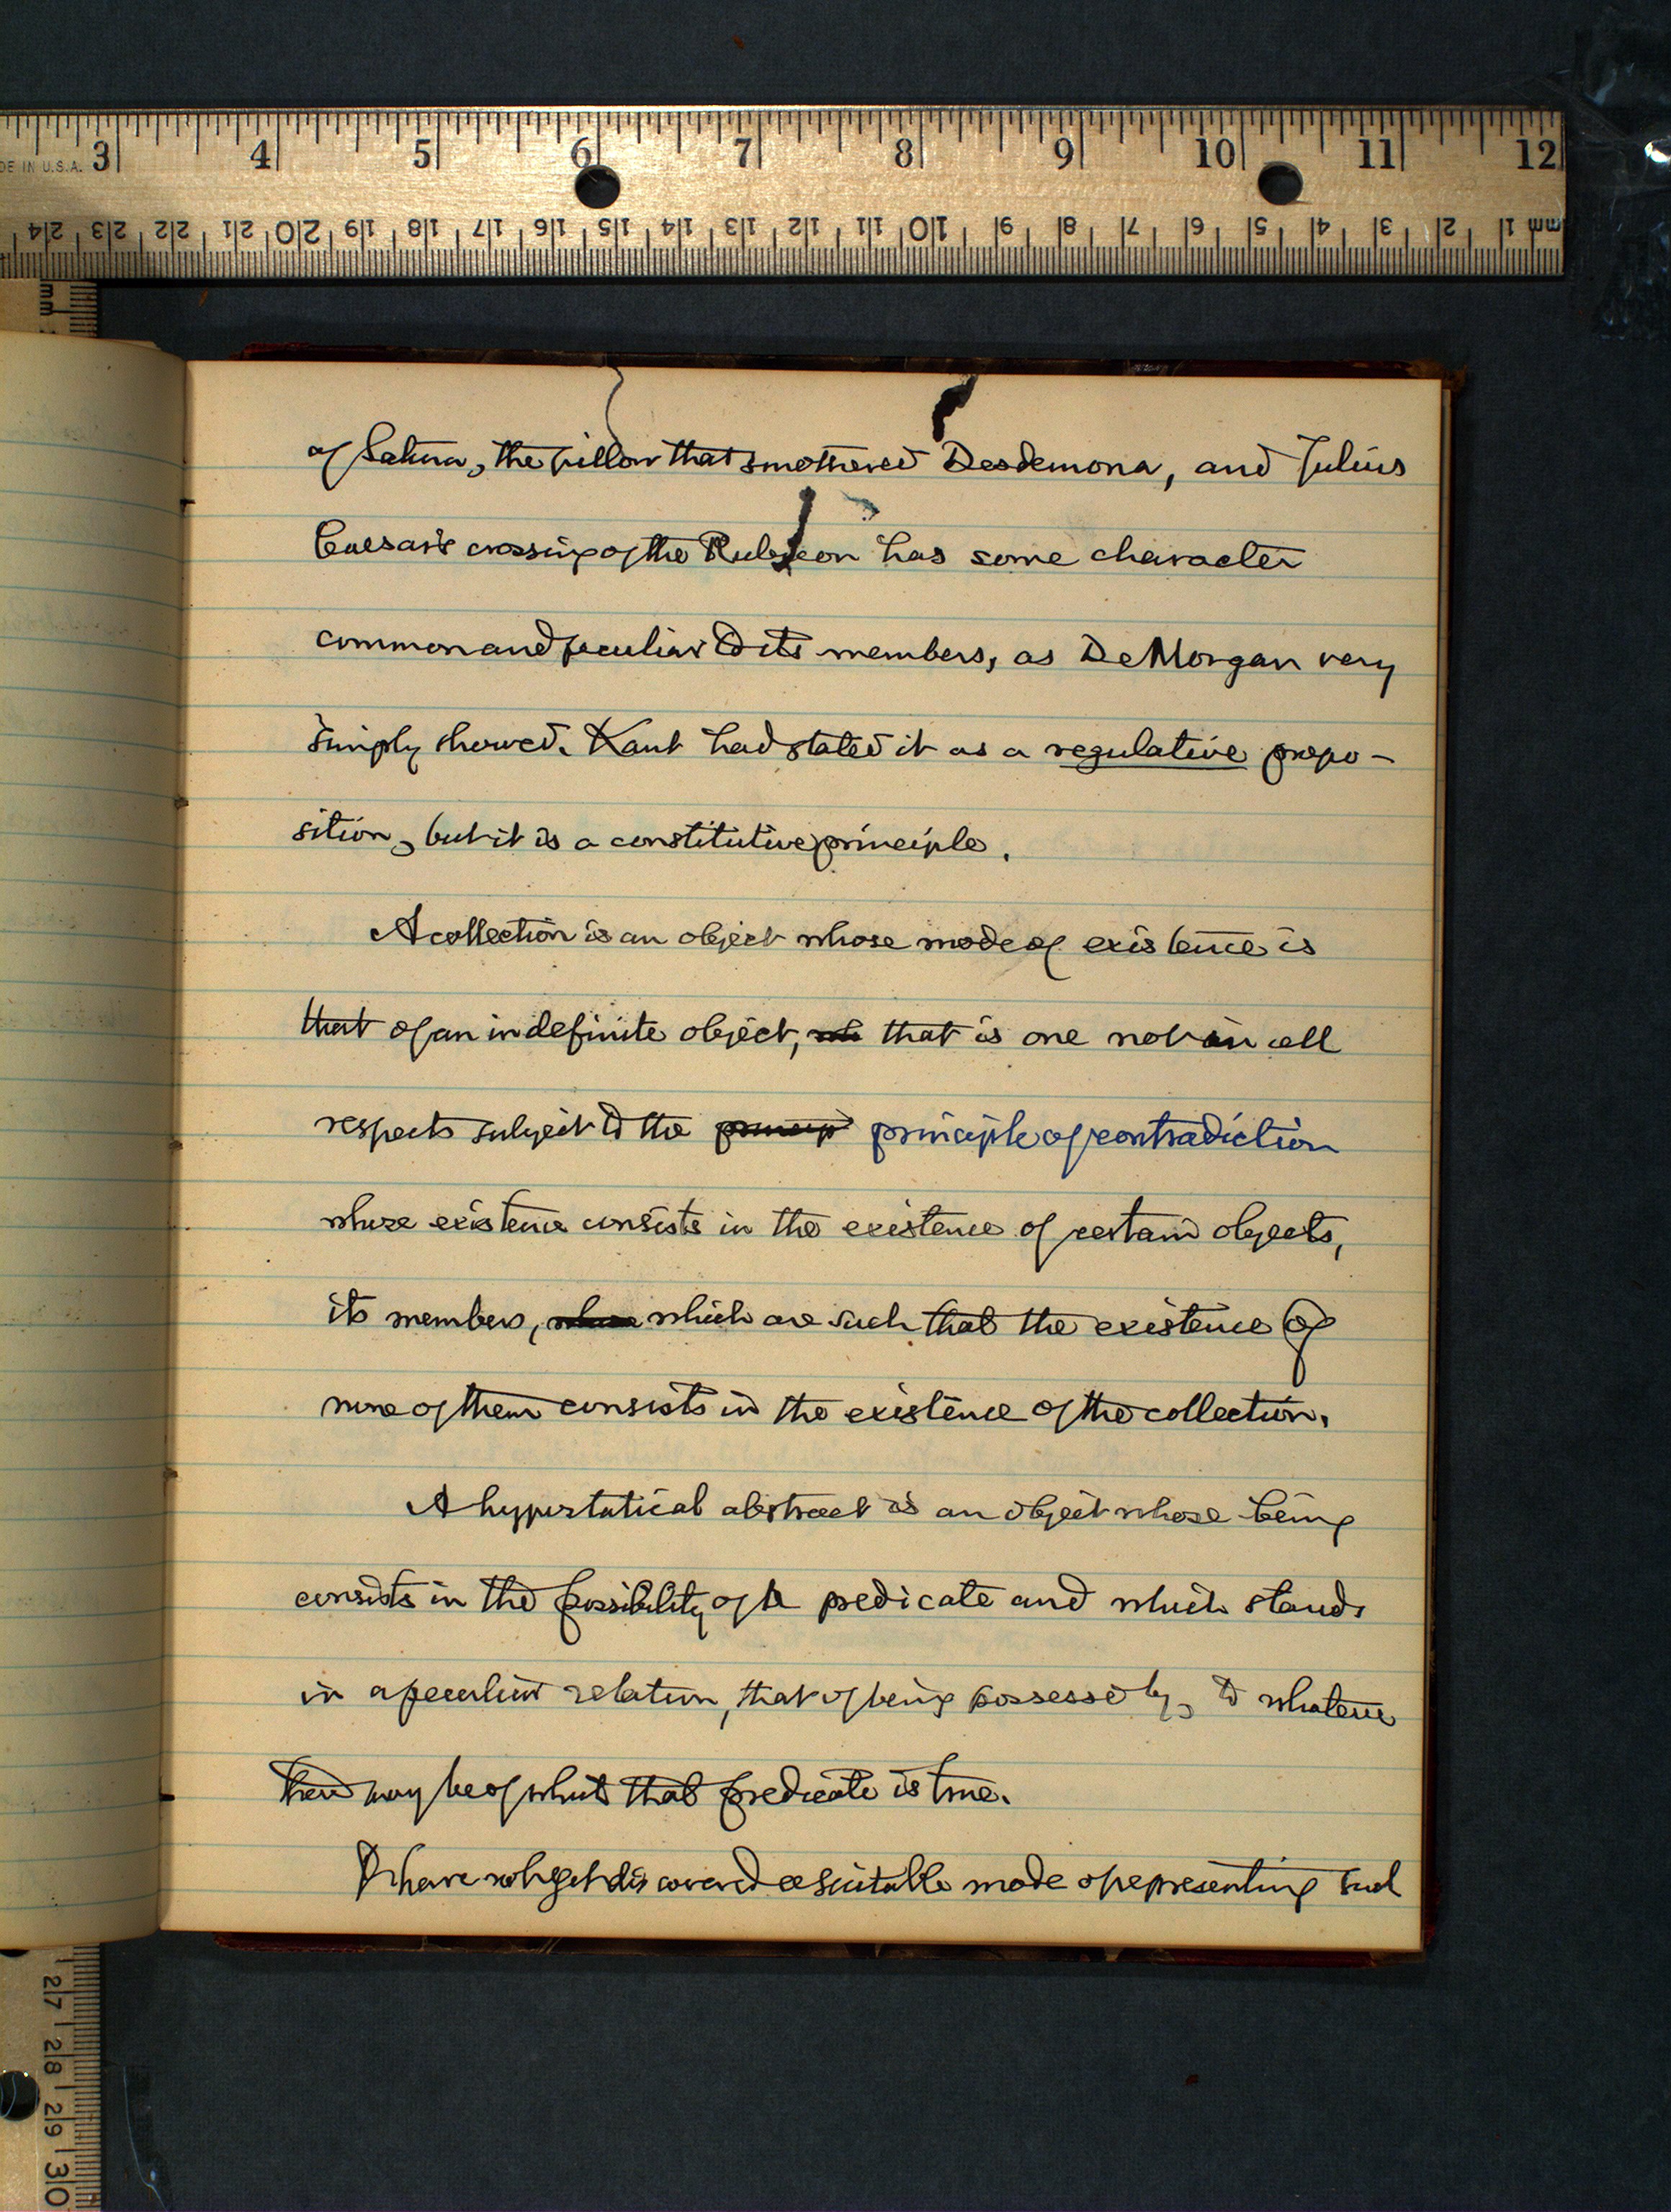 DE IN U.S.A. 3 4 5 6 7 8 9 10 11 12
24 23 22 21 20 19 18 17 16 15 14 13 12 11 10 9 8 7 6 5 4 3 2 1 mm
mm
of Saturn, the pillow that smothered Desdemona, and Julius
Caesar's crossing of the Rubicon has some character
common and peculiar to its members, as De Morgan very
simply showed. Kant had stated it as a regulative propo-
sition, but it is a constitutive principle.
A collection is an object whose mode of existence is
that of an indefinite object, that is one not in all
respects subject to the princip principle of contradiction
whose existence consists in the existence of certain objects,
its members, which are such that the existence of
none of them consists in the existence of the collection.
A hypostatical abstract is an object whose being
consists in the possibility of a predicate and which stands
in a peculiar relation, that of being possessed by, to whatever
there may be of which that predicate is true.
I have not yet discovered a suitable mode of representing such
27 28 29 30